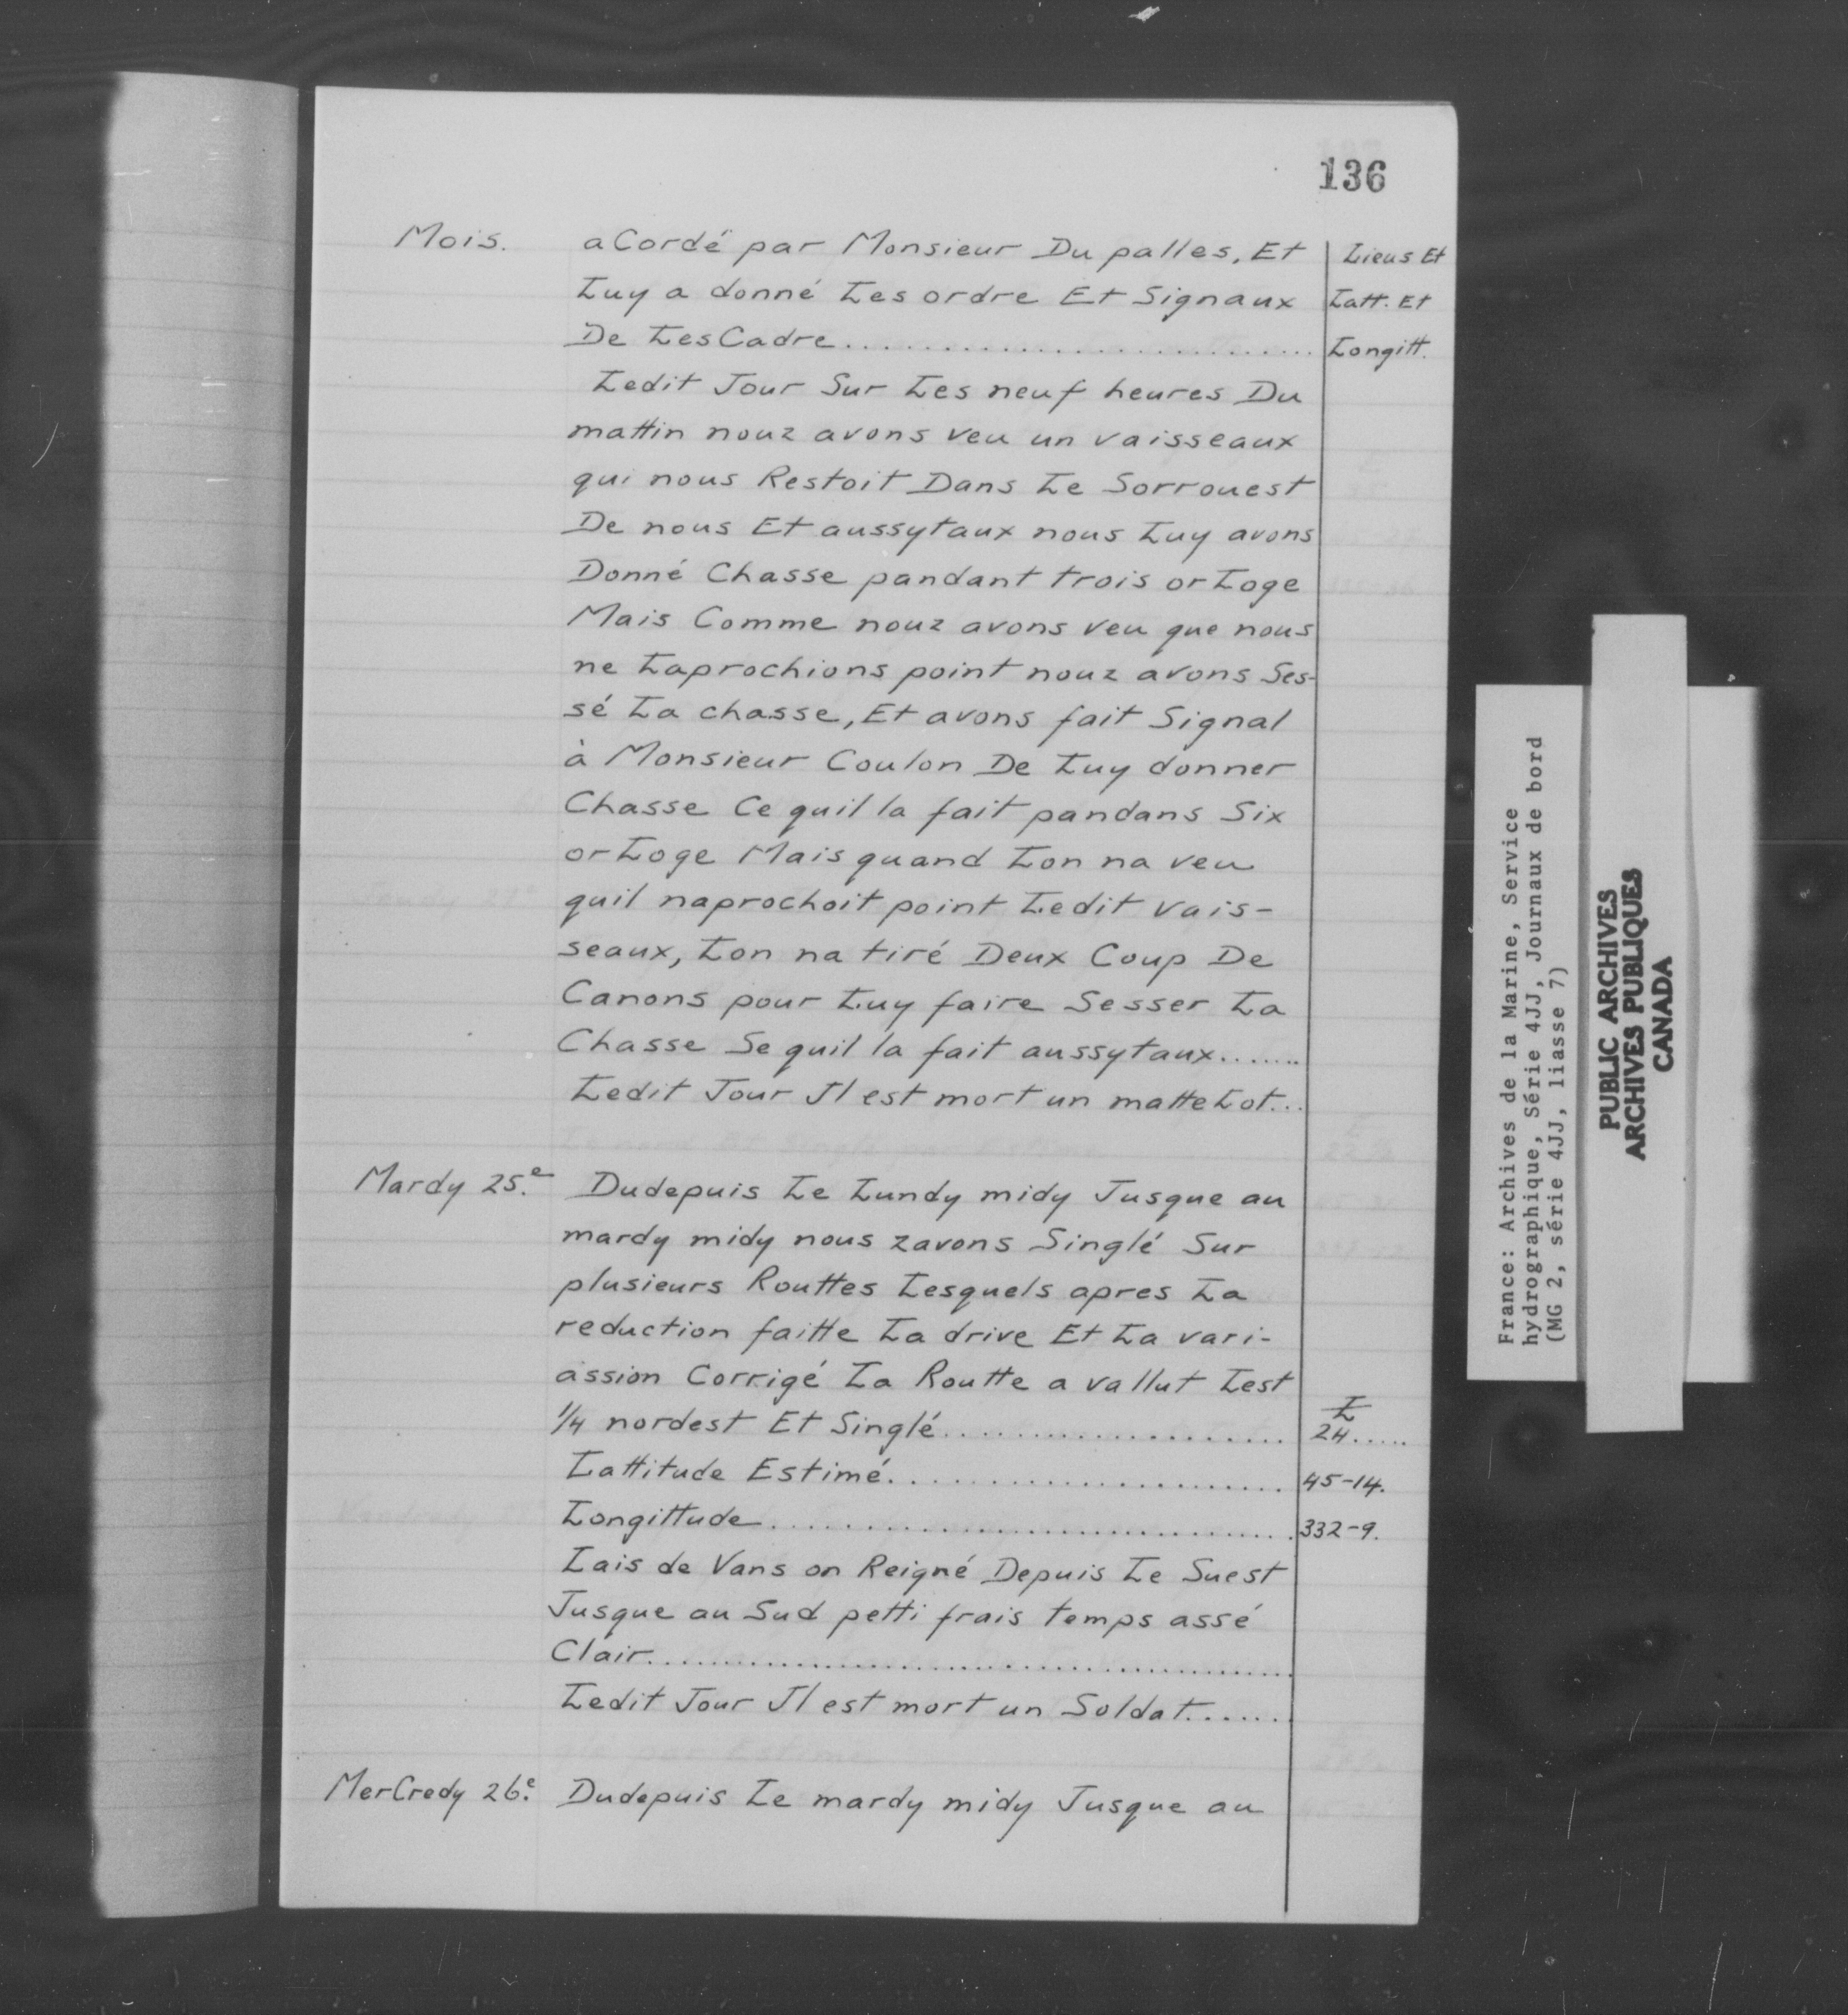 136
Mois.
aCordé par Monsieur Du palles, Et
Luy a donné Les ordre Et Signaux
De LesCadre
Lieus Et
Latt. Et
Longitt.
Ledit Jour Sur Les neuf heures Du
mattin nouz avons veu un vaisseaux
qui nous Restoit Dans Le Sorrouest
De nous Et aussytaux nous Luy avons
Donné Chasse pandant trois orLoge
Mais Comme nouz avons veu que nous
ne Laprochions point nouz avons Ses-
sé La chasse, Et avons fait Signal
à Monsieur Coulon De Luy donner
Chasse Ce quil la fait pandans Six
orLoge Mais quand Lon na veu
quil naprochoit point Ledit vais-
seaux, Lon na tiré Deux Coup De
Canons pour Luy faire Sesser La
Chasse Se quil la fait aussytaux.......
Ledit Jour Jl est mort un matteLot...
Mardy 25.e Dudepuis Le Lundy midy Jusque au
mardy midy nous zavons Singlé Sur
plusieurs Routtes Lesquels apres La
reduction faitte La drive Et La vari-
assion Corrigé La Routte a vallut Lest
1/4 nordest Et Singlé.................... L 24......
Lattitude Estimé...................... 45-14.
Longittude............................. 332-9.
Lais de Vans on Reigné Depuis Le Suest
Jusque au Sud petti frais temps assé
Clair...................................
Ledit Jour Jl est mort un Soldat.......
MerCredy 26.e Dudepuis Le mardy midy Jusque au
France: Archives de la Marine, Service
hydrographique, Série 4JJ, Journaux de bord
(MG 2, série 4JJ, liasse 7)
PUBLIC ARCHIVES
ARCHIVES PUBLIQUES
CANADA